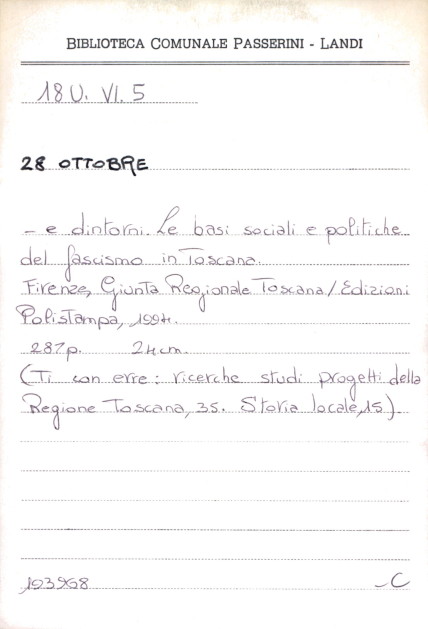 BIBLIOTECA COMUNALE PASSERINI - LANDI
18 U. VI. 5
28 OTTOBRE
- e dintorni. Le basi sociali e politiche
del fascismo in Toscana.
Firenze, Giunta Regionale Toscana/Edizioni
Polistampa, 1994.
287p. 24cm.
(Ti con erre: ricerche studi progetti della
Regione Toscana, 35. Storia locale, 15).
-C